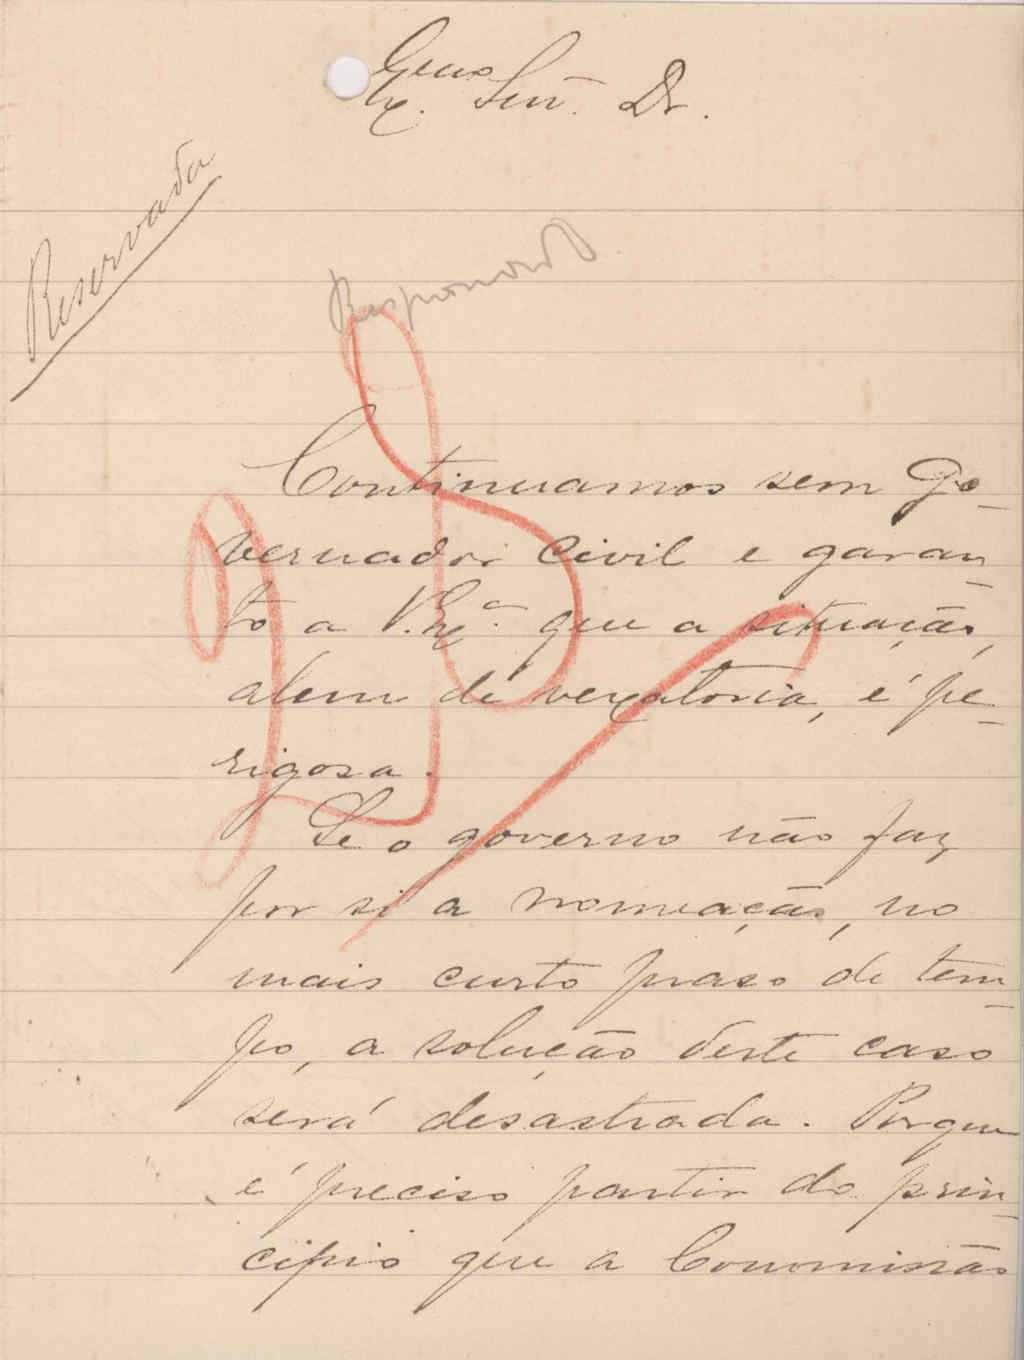 Exmo
Sñr. Dr.
Reservada
Respondido
Continuamos sem Go-
vernador civil e garan-
to a V. Exª. que a situação,
alem de vexatoria, é pe-
rigosa.
Se o governo não faz
por si a nomeação, no
mais curto praso de tem-
po, a solução deste caso
será desastrada. Porque
é preciso partir do prin-
cipio que a Commissão